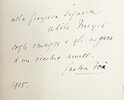 alla graziosa Signora
Adele
cogli omaggi e gli auguri
di un vecchio amico
1905.